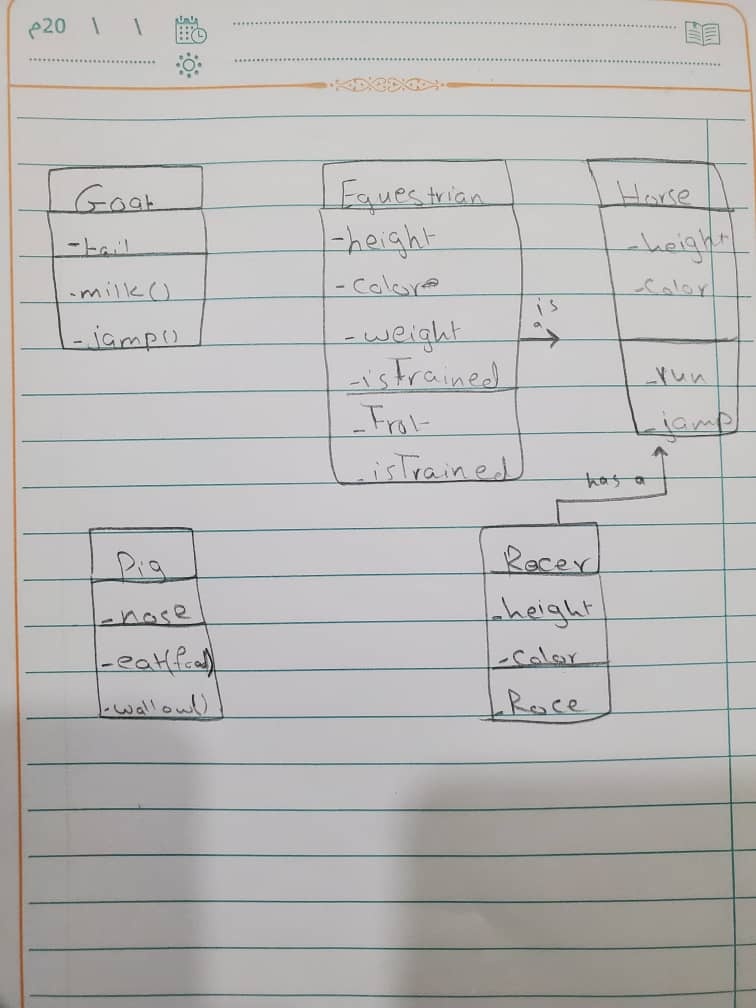 م20 / /
Goat
-tail
-milk()
-jamp()
Equestrian
-height
-Color
-weight
-isTrained
-Trot
-isTrained
is
a
Horse
-height
-Color
-run
-jamp
has a
Pig
-nose
-eat(food)
-wallow()
Racer
-height
-Color
-Race